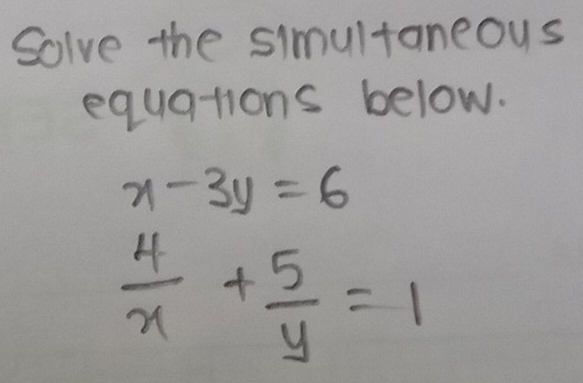 Solve the simultaneous
equations below.
x - 3y = 6
4/x + 5/y = 1